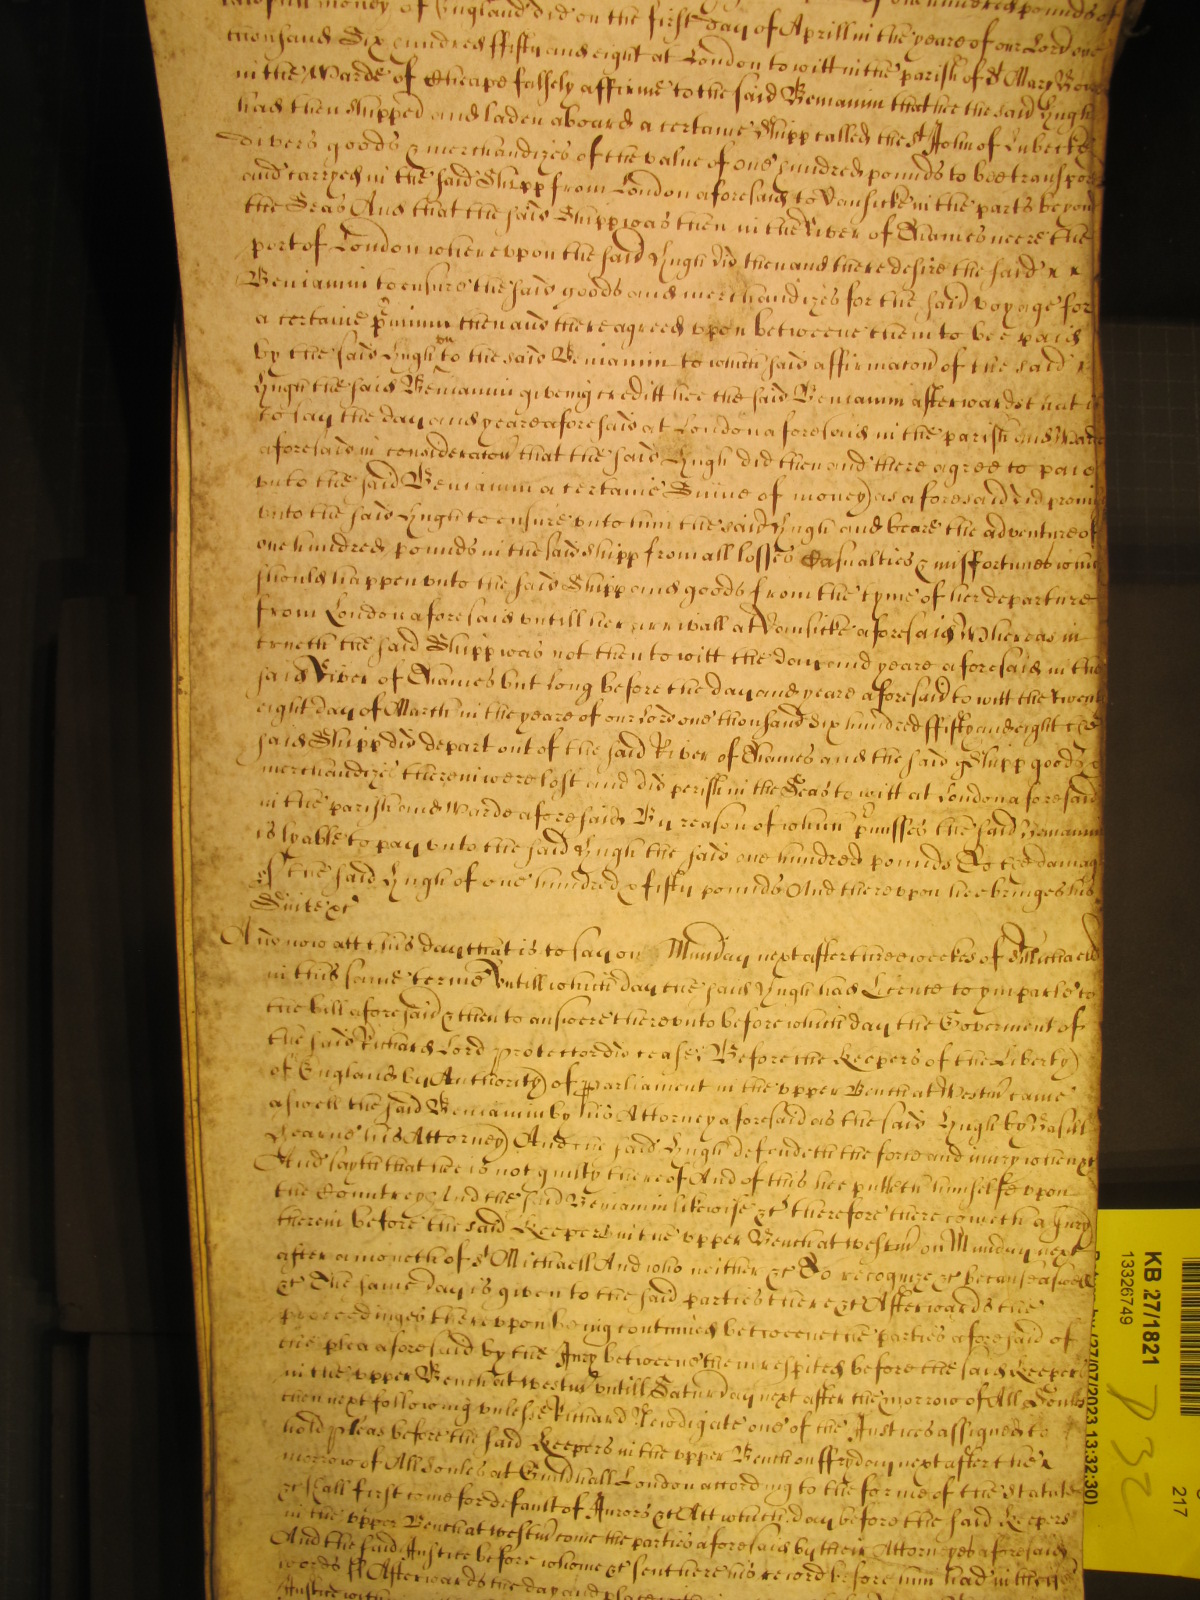 lawfull money of England did on the first day of Aprill in the yeare of our Lord one
thousand Six hundred ffifty and eight at London to witt in the parish of St Mary Bow
in the Warde of Cheape falsely affirme to the said Beniamin that hee the said Hugh
had then shipped and laden aboard a certaine Shipp called the St John of Lubecke
divers goods & merchandizes of the value of one hundred pounds to bee transpor
and carryed in the said Shipp from London aforesaid to Dansicke in the parts beyond
the Seas And that the said Shipp was then in the River of Thames neere the
port of London whereupon the said Hugh did then and there desire the said
Beniamin to ensure the said goods and merchandizes for the said voyage for
a certaine p̄mium then and there agreed vpon betweene them to bee paid
by the said Hugh to the said Beniamin to which said affirmacon of the said
Hugh the said Beniamin giveing creditt hee the said Beniamin afterwards that is
to say the day and yeare aforesaid at London aforesaid in the parish and Warde
aforesaid in consideracon that the said Hugh did then and there agree to paie
vnto the said Beniamin a certaine Summe of money as aforesaid did promise
vnto the said Hugh to ensure vnto him the said Hugh and beare the adventure of
one hundred pounds in the said shipp from all losses Casualties & missfortunes which
should happen vnto the said Shipp and goods from the tyme of her departure
from London aforesaid vntill her arrivall at Dansicke aforesaid Whereas in
trueth the said Shipp was not then to witt the day and yeare aforesaid in the
said River of Thames but long before the day and yeare aforesaid to witt the twenty
eight day of March in the yeare of our Lord one thousand six hundred ffifty and eight the
said Shipp did depart out of the said River of Thames and the said Shipp goods &
merchandizes therein were lost and did perish in the Seas to witt at London aforesaid
in the parish and Warde aforesaid By reason of which p̄misses the said Beniamin
is lyable to pay vnto the said Hugh the said one hundred pounds To the damage
of the said Hugh of one hundred & fifty pounds And thereupon hee bringes his
Suite &c
And now att this day that is to say on Munday next after three weekes of St Michaell
in this same terme Vntill which day the said Hugh had Licence to ymparle to
the bill aforesaid & then to answere therevnto before which day the Goverment of
the said Richard Lord Protector did cease Before the Keepers of the Liberty
of England by Authority of Parliament in the vpper Bench at Westm̄ came
aswell the said Beniamin by his Attorney aforesaid as the said Hugh by Basill
Hearne his Attorney And the said Hugh defendeth the force and iniury when &c
And sayth that hee is not guilty thereof And of this hee putteth himselfe vpon
the Countrey And the said Beniamin likewise &c therefore there cometh a Jury
therein before the said Keepers in the vpper Bench at Westm̄ on Munday next
after a moneth of St Michaell And who neither &c To recognize &c because aswell
&c The same day is given to the said parties there &c Afterwards the
proceedinges thereupon being continued betweene the parties aforesaid of
the plea aforesaid by the Jury betweene them respited before the said Keepers
in the vpper Bench at Westm̄ vntill Saturday next after the morrow of All Soules
then next following vnlesse Richard Newdigate one of the Justices assigned to
hold pleas before the said Keepers in the vpper Bench on ffryday next after the
morrow of All Soules at Guildhall London according to the forme of the Statute
&c shall first come for default of Jurors &c Att which day before the said Keepers
in the vpper Bench at Westm̄ come the parties aforesaid by their Attorneyes aforesaid
And the said Justice before whome &c sent here his record before him had in these
words ss Afterwards the day and place
KB 27/1821
13326749
27/07/2023 13:32:30)
217
P 32